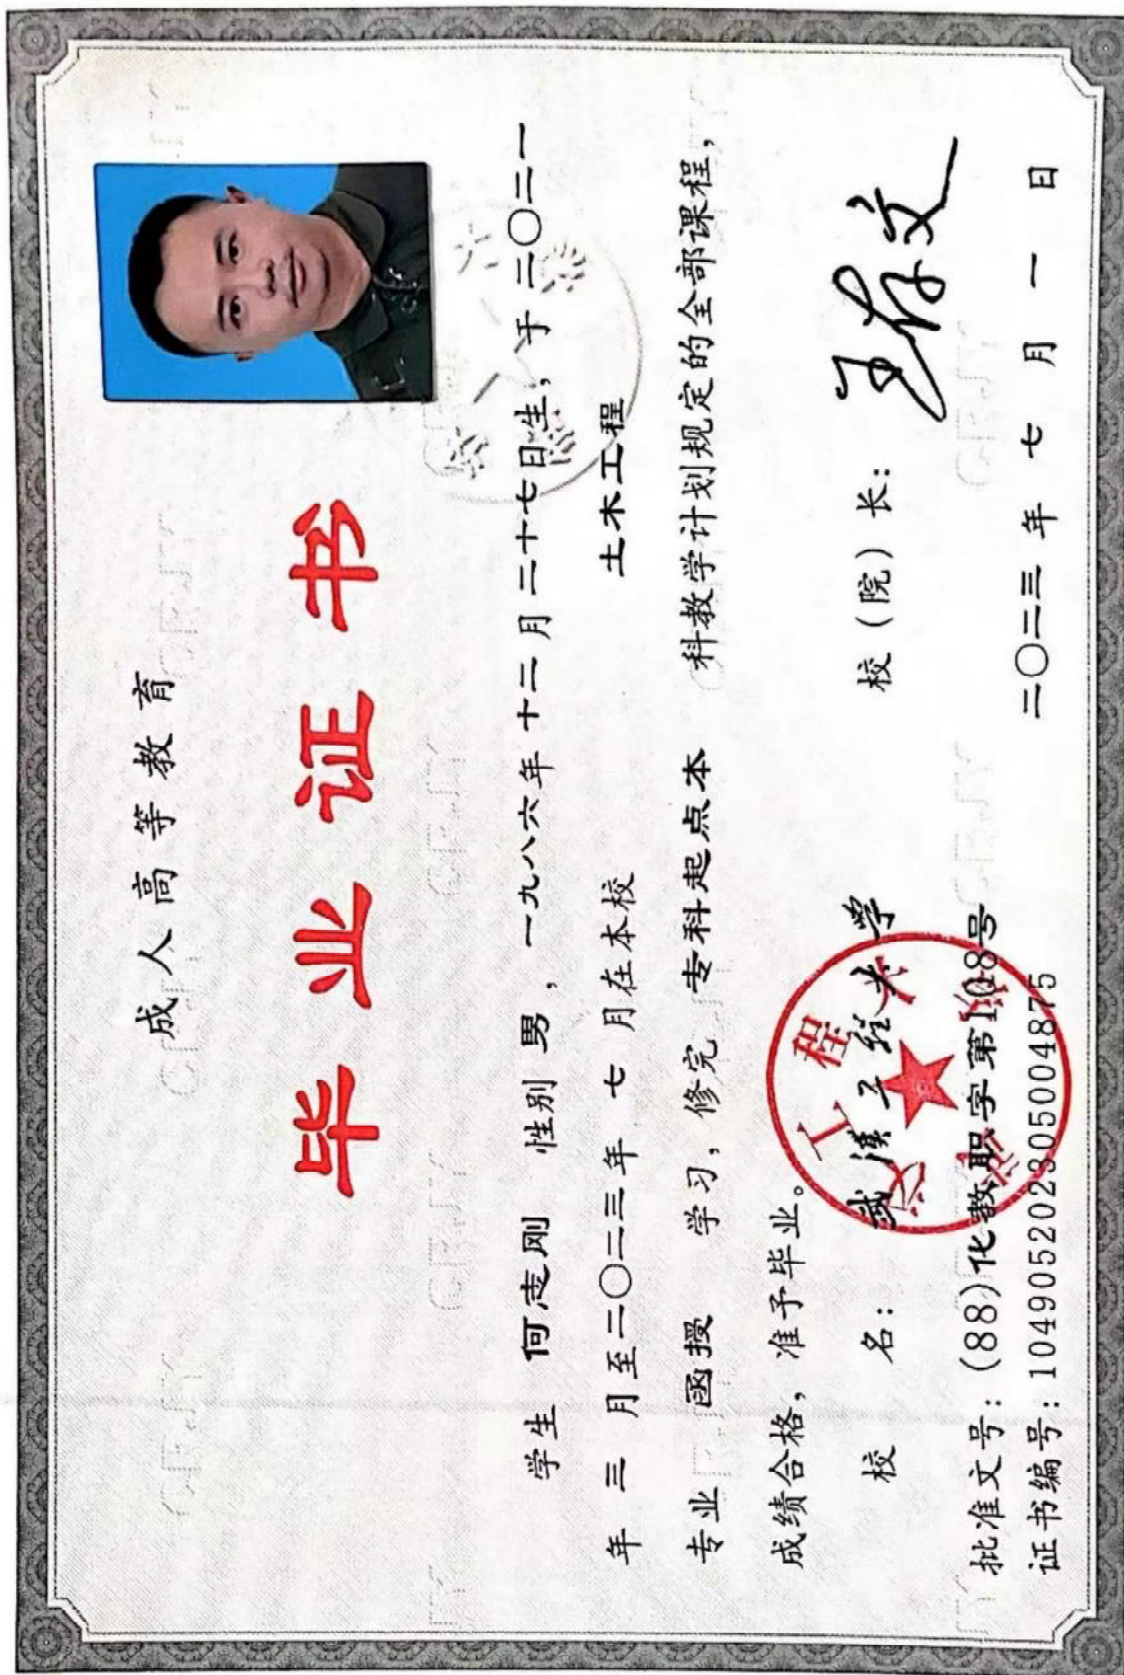 成人高等教育
毕业证书
学生 何志刚 性别 男，一九八六年十二月二十七日生，于二〇二一
年 三 月至二〇二三年 七 月在本校 土木工程
专业 函授 学习，修完 专科起点本 科教学计划规定的全部课程，
成绩合格，准予毕业。
校 名： 武汉工程大学 校（院）长： 王存文
批准文号：(88)化教职字第108号
证书编号：104905202305004875 二〇二三 年 七 月 一 日